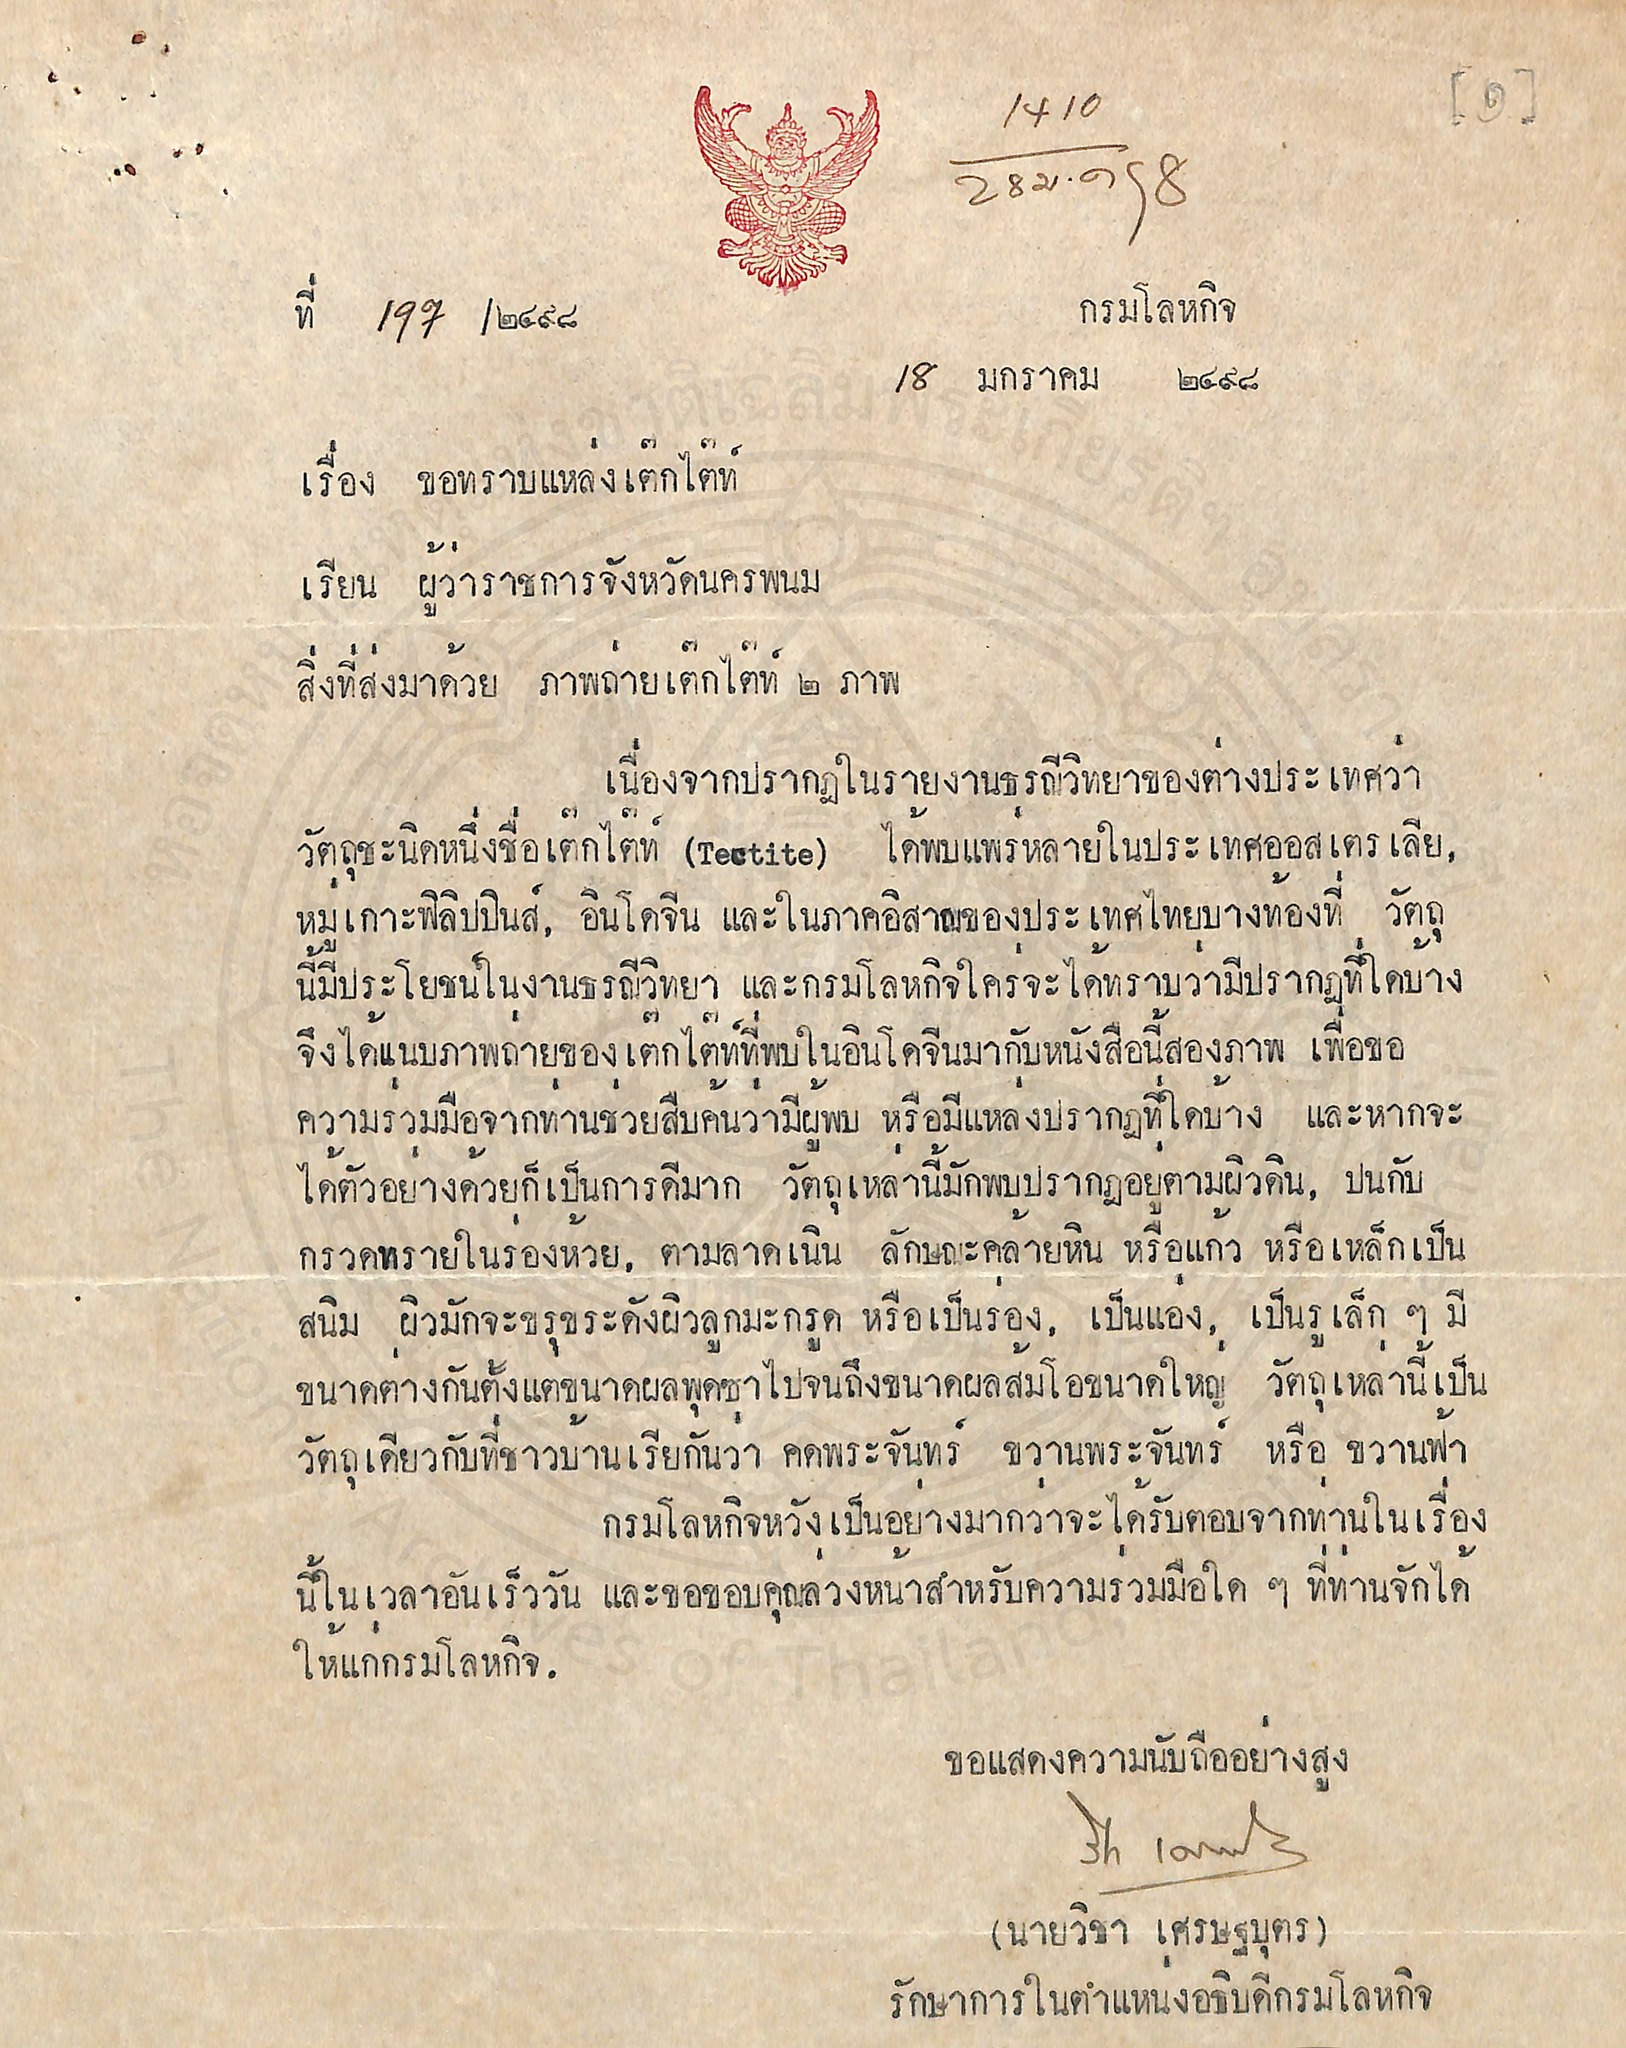 [๑]
1410
28 ม.ค. 98
ที่ 197 /๒๔๙๘
กรมโลหกิจ
18 มกราคม ๒๔๙๘
เรื่อง ขอทราบแหล่งเต๊กไต๊ท์
เรียน ผู้ว่าราชการจังหวัดนครพนม
สิ่งที่ส่งมาด้วย ภาพถ่ายเต๊กไต๊ท์ ๒ ภาพ
เนื่องจากปรากฏในรายงานธรณีวิทยาของต่างประเทศว่า
วัตถุชะนิดหนึ่งชื่อเต๊กไต๊ท์ (Tectite) ได้พบแพร่หลายในประเทศออสเตรเลีย,
หมู่เกาะฟิลิปปินส์, อินโดจีน และในภาคอิสาณของประเทศไทยบางท้องที่ วัตถุ
นี้มีประโยชน์ในงานธรณีวิทยา และกรมโลหกิจใคร่จะได้ทราบว่ามีปรากฏที่ใดบ้าง
จึงได้แนบภาพถ่ายของเต๊กไต๊ท์ที่พบในอินโดจีนมากับหนังสือนี้สองภาพ เพื่อขอ
ความร่วมมือจากท่านช่วยสืบค้นว่ามีผู้พบ หรือมีแหล่งปรากฏที่ใดบ้าง และหากจะ
ได้ตัวอย่างด้วยก็เป็นการดีมาก วัตถุเหล่านี้มักพบปรากฏอยู่ตามผิวดิน, ปนกับ
กรวดทรายในร่องห้วย, ตามลาดเนิน ลักษณะคล้ายหิน หรือแก้ว หรือเหล็กเป็น
สนิม ผิวมักจะขรุขระดังผิวลูกมะกรูด หรือเป็นร่อง, เป็นแอ่ง, เป็นรูเล็ก ๆ มี
ขนาดต่างกันตั้งแต่ขนาดผลพุดซาไปจนถึงขนาดผลส้มโอขนาดใหญ่ วัตถุเหล่านี้เป็น
วัตถุเดียวกับที่ชาวบ้านเรียกันว่า คดพระจันทร์ ขวานพระจันทร์ หรือ ขวานฟ้า
กรมโลหกิจหวังเป็นอย่างมากว่าจะได้รับตอบจากท่านในเรื่อง
นี้ในเวลาอันเร็ววัน และขอขอบคุณล่วงหน้าสำหรับความร่วมมือใด ๆ ที่ท่านจักได้
ให้แก่กรมโลหกิจ.
ขอแสดงความนับถืออย่างสูง
(นายวิชา เศรษฐบุตร)
รักษาการในตำแหน่งอธิบดีกรมโลหกิจ